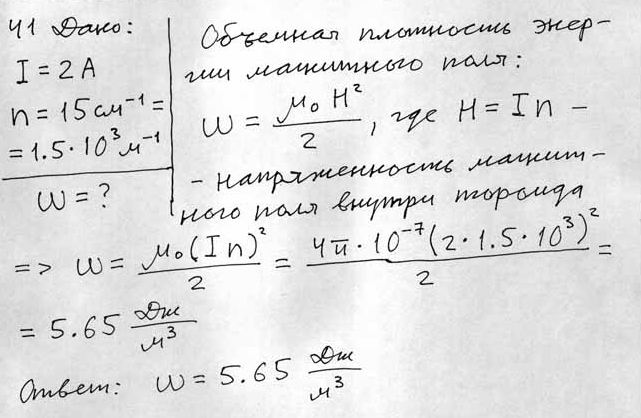 41 Дано:
I = 2 А
n = 15 см⁻¹ =
= 1.5 · 10³ м⁻¹
ω = ?
Объемная плотность энер-
гии магнитного поля:
ω = μ₀ H² / 2, где H = In –
- напряженность магнит-
ного поля внутри тороида
=> ω = μ₀(In)² / 2 = 4π · 10⁻⁷ (2 · 1.5 · 10³)² / 2 =
= 5.65 Дж / м³
Ответ: ω = 5.65 Дж / м³